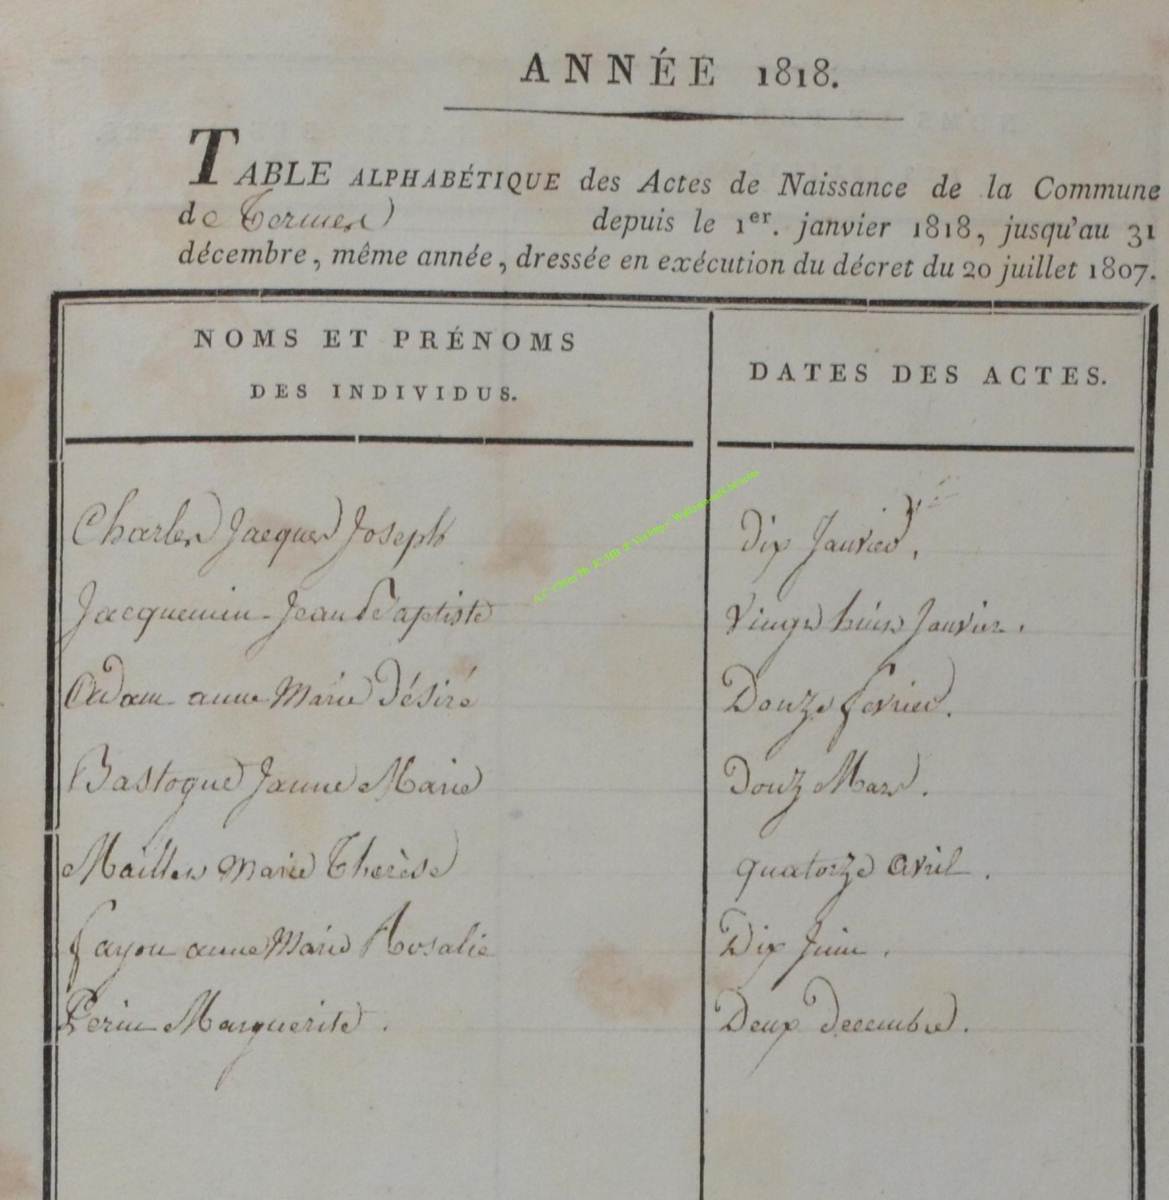 ANNÉE 1818.
TABLE ALPHABÉTIQUE des Actes de Naissance de la Commune
de Termes depuis le 1er. janvier 1818, jusqu'au 31
décembre, même année, dressée en exécution du décret du 20 juillet 1807.
NOMS ET PRÉNOMS
DES INDIVIDUS.
DATES DES ACTES.
Charles Jacques Joseph Dix Janvier.
Jacquemin - Jean Baptiste Vingt huit Janvier.
Adam anne Marie Désiré Douze fevrier.
Bastogne Janne Marie Douz Mars.
Marie Thérèse quatorze avril.
fayon anne Marie Rosalie Dix Juin.
Perin Marguerite. Deux Decembre.